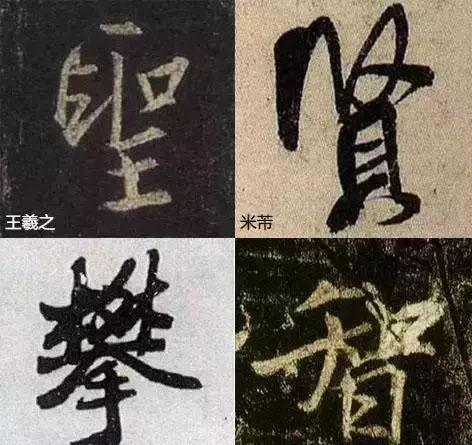 聖 賢
王羲之 米芾
攀 智